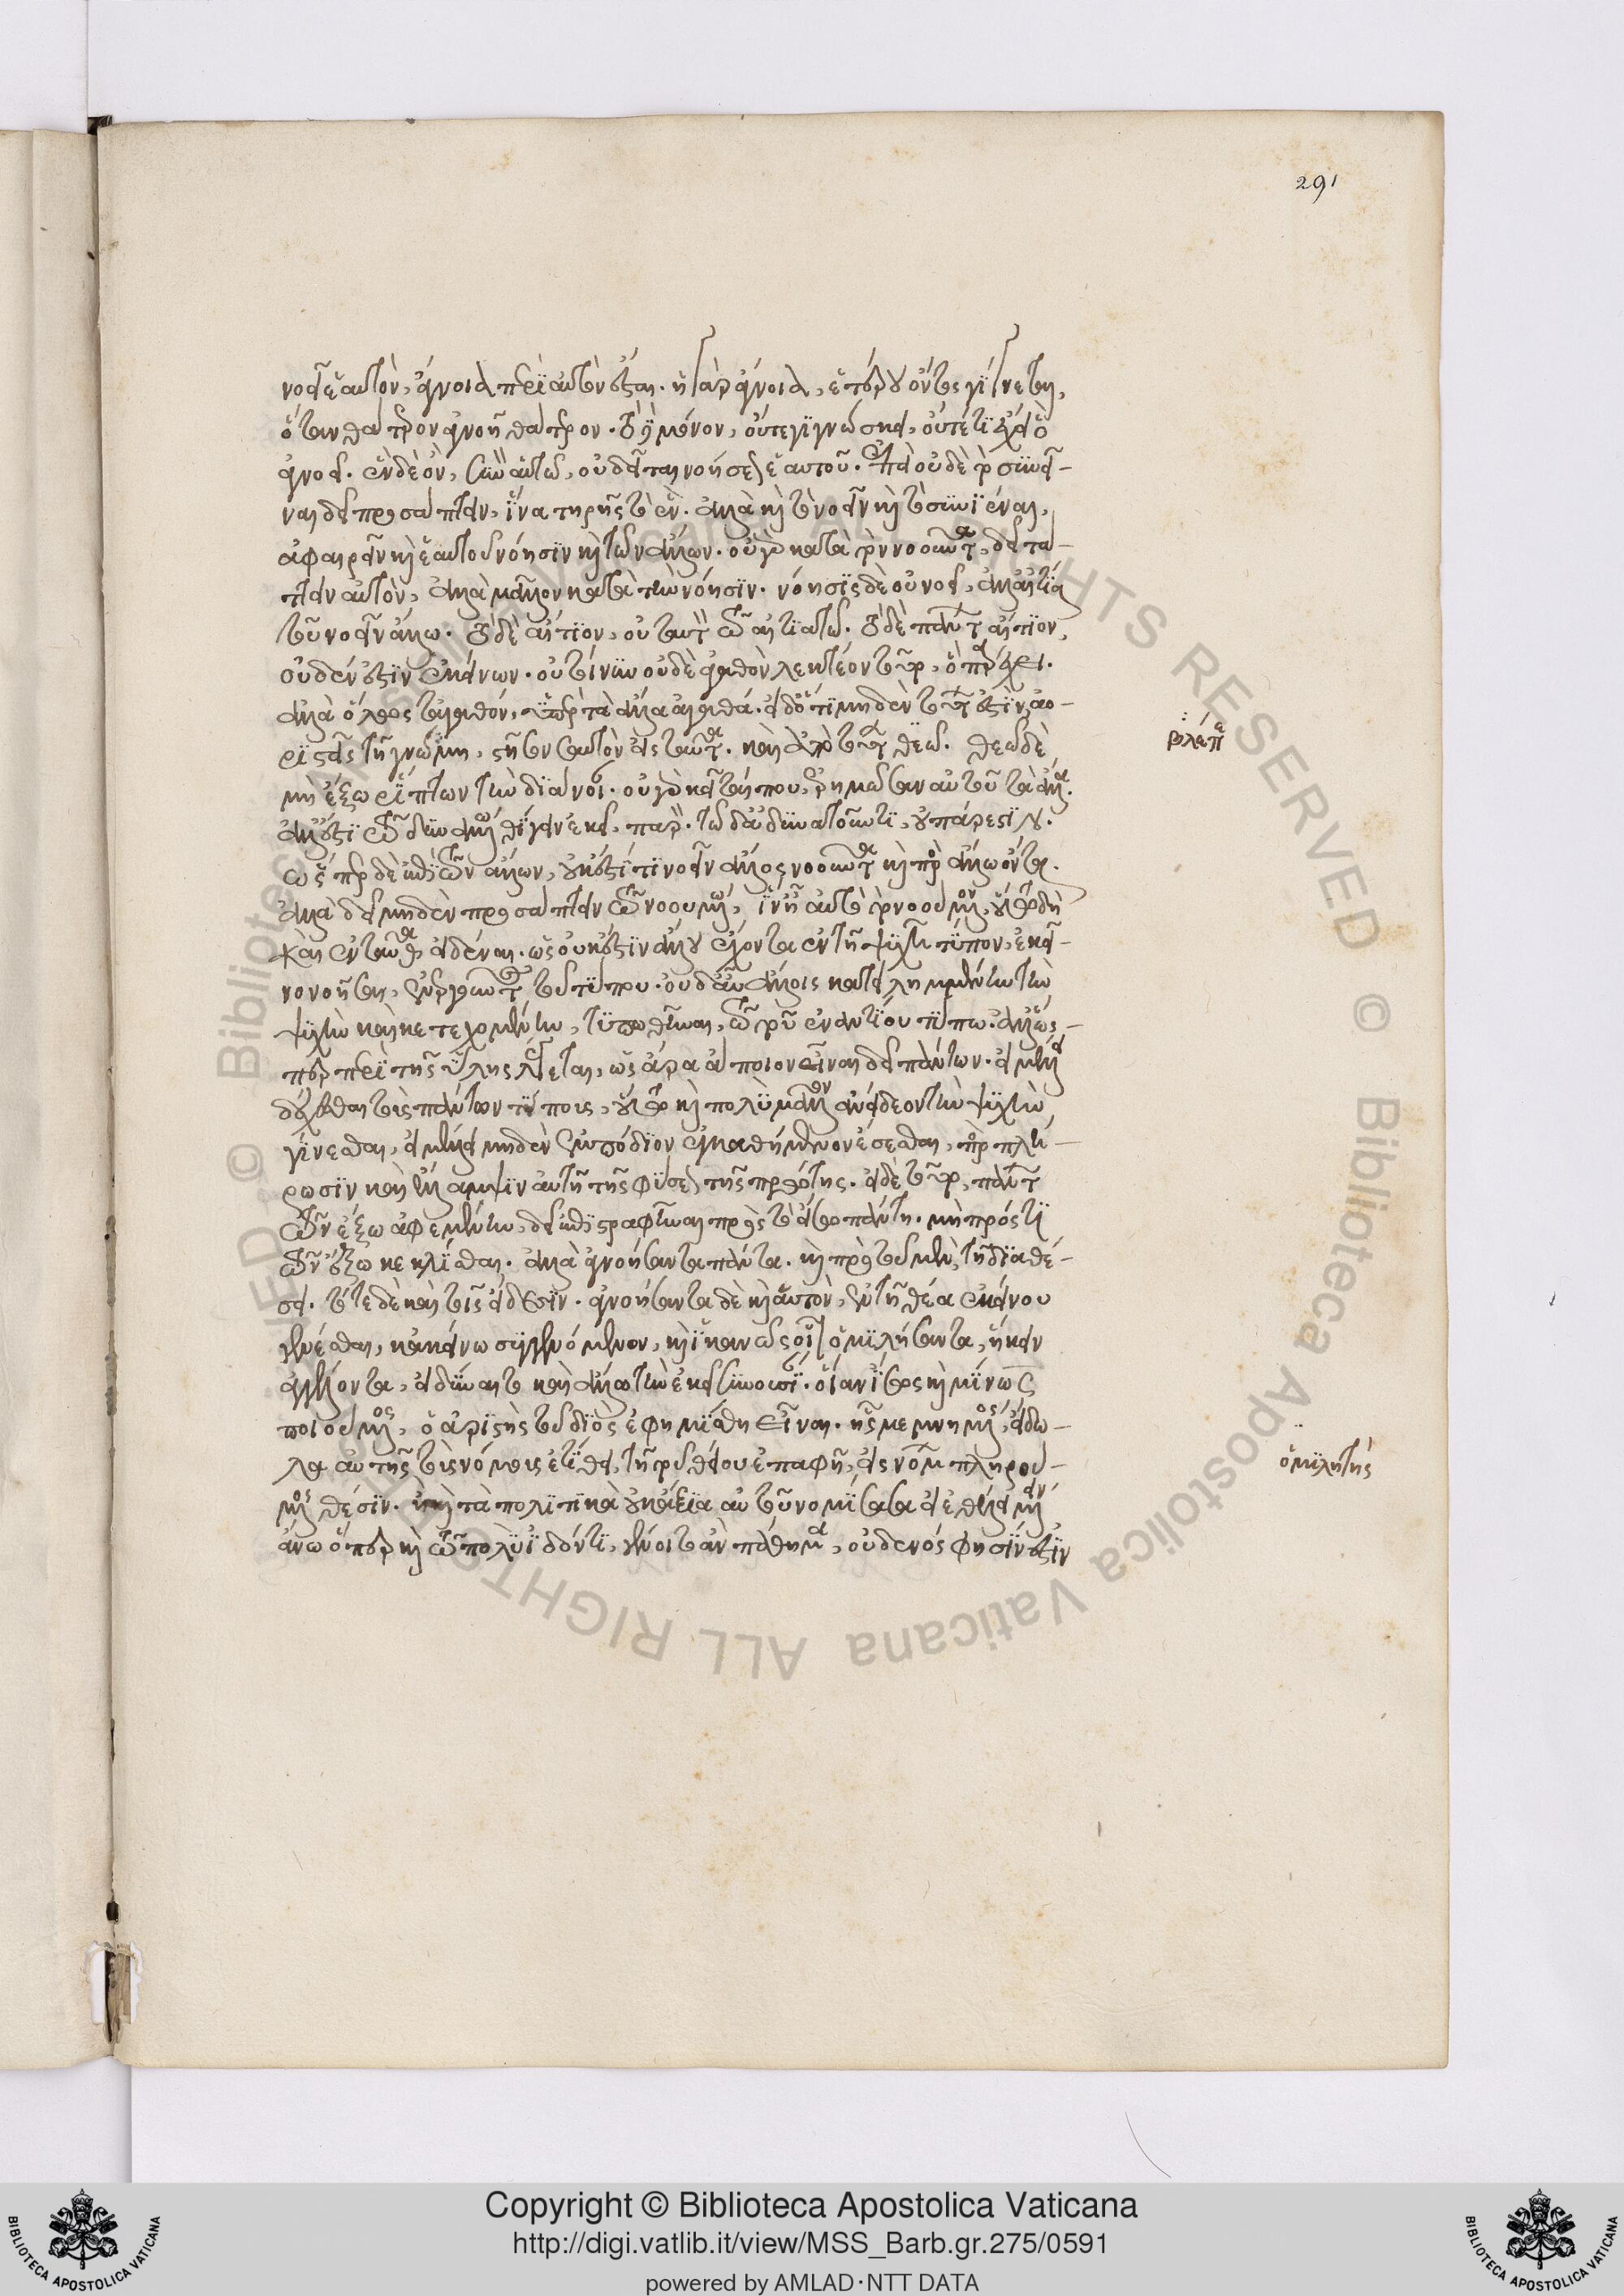 291
νοεῖ ἑαυτὸν, ἄγνοια περὶ αὐτὸν ἔσται. ἡ γὰρ ἄγνοια, ἑτέρου ὄντος γίγνεται,
ὅταν θάτερον ἀγνοῇ θάτερον. τὸ δὲ μόνον, οὔτε γιγνώσκει, οὔτέ τι ἔχει ὃ
ἀγνοεῖ. ἓν δὲ ὂν, συνὸν αὑτῶ, οὐ δεῖται νοήσεως ἑαυτοῦ. ἐπεὶ οὐδὲ τὸ συνεῖ-
ναι δεῖ προσάπτειν, ἵνα τηρῇς τὸ ἕν. ἀλλὰ καὶ τὸ νοεῖν καὶ τὸ συνιέναι,
ἀφαιρεῖν καὶ ἑαυτοῦ νόησιν καὶ τῶν ἄλλων. οὐ γὰρ κατὰ τὸν νοοῦντα, δεῖ τάτ-
τειν αὐτὸν, ἀλλὰ μᾶλλον κατὰ τὴν νόησιν. νόησις δὲ οὐ νοεῖ, ἀλλ' αἰτία
τοῦ νοεῖν ἄλλω. τὸ δὲ αἴτιον, οὐ ταὐτὸν τῶ αἰτιατῶ. τὸ δὲ πάντων αἴτιον,
οὐδέν ἐστιν ἐκείνων. οὐ τοίνυν οὐδὲ ἀγαθὸν λεκτέον τοῦτο, ὃ παρέχει.
ἀλλὰ ἄλλως τἀγαθόν, ὑπὲρ τὰ ἄλλα ἀγαθά. εἰ δ' ὅτι μηδὲν τούτων ἐστὶν, ἀο-
ριστεῖς τῇ γνώμη, στῆσον σαυτὸν εἰς ταῦτα. καὶ ἀπὸ τούτων θεῶ. θεῶ δὲ
βλέπε
μὴ ἔξω ῥίπτων τὴν διάνοιαν. οὐ γὰρ κεῖταί που, ἐρημῶσαν αὐτοῦ τὰ ἄλλα.
ἀλλ' ἔστι τῶ δυναμένω θίγειν ἐκεῖ, παρόν. τῶ δ' ἀδυνατοῦντι, οὐ πάρεστιν.
ὥσπερ δὲ ἐπὶ τῶν ἄλλων, οὐκ ἔστί τι νοεῖν ἄλλο νοοῦντα καὶ πρὸς ἄλλω ὄντα.
ἀλλὰ δεῖ μηδὲν προσάπτειν τῶ νοουμένω, ἵν' ᾖ αὐτὸ τὸ νοούμενον, οὕτω δεῖ
καὶ ἐνταῦθα εἰδέναι. ὡς οὐκ ἔστιν ἄλλου ἔχοντα ἐν τῇ ψυχῇ τύπον, ἐκεῖ-
νο νοῆσαι, ἐνεργοῦντος τοῦ τύπου. οὐδ' αὖ ἄλλοις κατειλημμένην τὴν
ψυχὴν καὶ κατεχομένην, τυπωθῆναι, τῶ τοῦ ἐναντίου τύπω. ἀλλ' ὥσ-
περ περὶ τῆς ὕλης λέγεται, ὡς ἄρα ἄποιον εἶναι δεῖ πάντων. εἰ μέλλει
δέχεσθαι τοὺς πάντων τύπους, οὕτω καὶ πολὺ μᾶλλον ἀνείδεον τὴν ψυχὴν
γίνεσθαι, εἰ μέλλει μηδὲν ἐμπόδιον ἐγκαθήμενον ἔσεσθαι, πρὸς πλή-
ρωσιν καὶ ἔλλαμψιν αὐτῇ τῆς φύσεως τῆς πρώτης. εἰ δὲ τοῦτο, πάντων
τῶν ἔξω ἀφεμένην, δεῖ ἐπιστραφῆναι πρὸς τὸ εἴσω πάντη. μὴ πρός τι
τῶν ἔξω κεκλίσθαι. ἀλλὰ ἀγνοήσαντα πάντα. καὶ πρὸ τοῦ μὲν, τῇ διαθέ-
σει. τότε δὲ καὶ τοῖς εἴδεσιν. ἀγνοήσαντα δὲ καὶ αὑτὸν, ἐν τῇ θέα ἐκείνου
γενέσθαι, κἀκείνω συγγενόμενον, καὶ ἱκανῶς οἷον ὁμιλήσαντα, ἥκειν
ἀγγέλλοντα, εἰ δύναιτο καὶ ἄλλω τὴν ἐκεῖ συνουσίαν. οἵαν ἴσως καὶ μίνως
ποιούμενος, ὀαριστὴς τοῦ διὸς ἐφημίσθη εἶναι. ἧς μεμνημένος, εἴδω-
λα αὐτῆς τοὺς νόμους ἐτίθει, τῇ τοῦ θείου ἐπαφῇ, εἰς νόμων πληρού-
ὁμιλητής
μενος θέσιν. ἢ καὶ τὰ πολιτικὰ οὐκ ἄξια αὐτοῦ νομίσας ἀεὶ ἐθέλει μένειν
ἄνω ὅπερ καὶ τῶ πολὺ ἰδόντι, γένοιτο ἂν πάθημα, οὐδενός φησίν ἐστιν
Copyright © Biblioteca Apostolica Vaticana
http://digi.vatlib.it/view/MSS_Barb.gr.275/0591
powered by AMLAD·NTT DATA